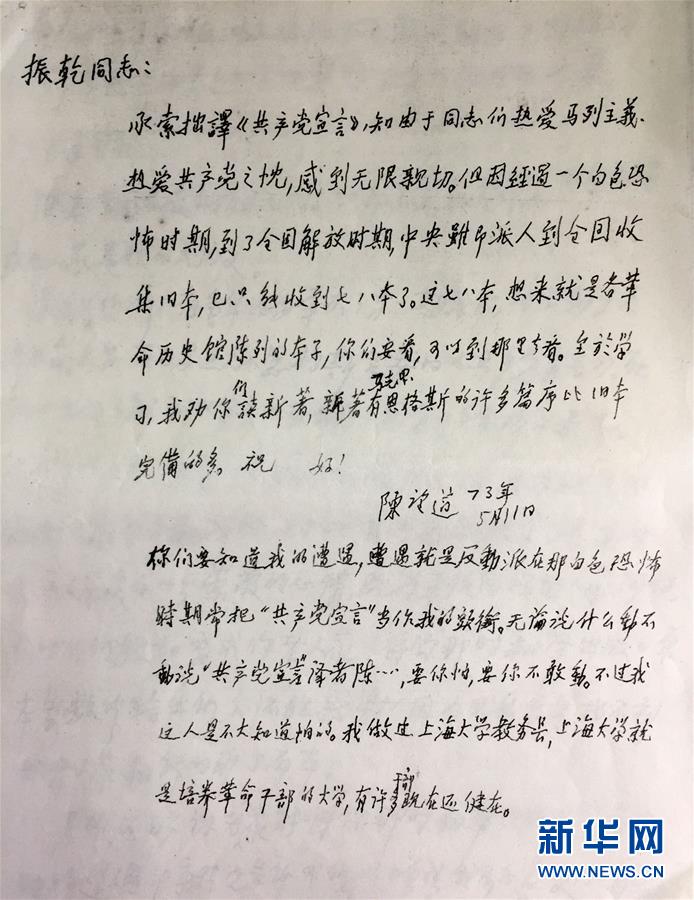 振乾同志：
承索拙譯《共产党宣言》，知由于同志们热爱马列主義、
热爱共产党之忱，感到无限親切。但因經過一个白色恐
怖时期，到了全国解放时期，中央雖即派人到全国收
集旧本，已只能收到七八本了。这七八本，想来就是各革
命历史館陈列的本子，你们要看，可以到那里去看。至於学
习，我劝你们讀新著，新著有马克思、恩格斯的许多篇序比旧本
完備的多。祝 好！
陳望道 73年
5月11日
你们要知道我的遭遇，遭遇就是反動派在那白色恐怖
時期常把“共产党宣言”当作我的頭銜。无論说什么動不
動说“共产党宣言”译者陈……，要你怕，要你不敢動。不过我
这人是不大知道怕的。我做过上海大学教务長，上海大学就
是培养革命干部的大学，有许多干部现在还健在。
新华网
WWW.NEWS.CN